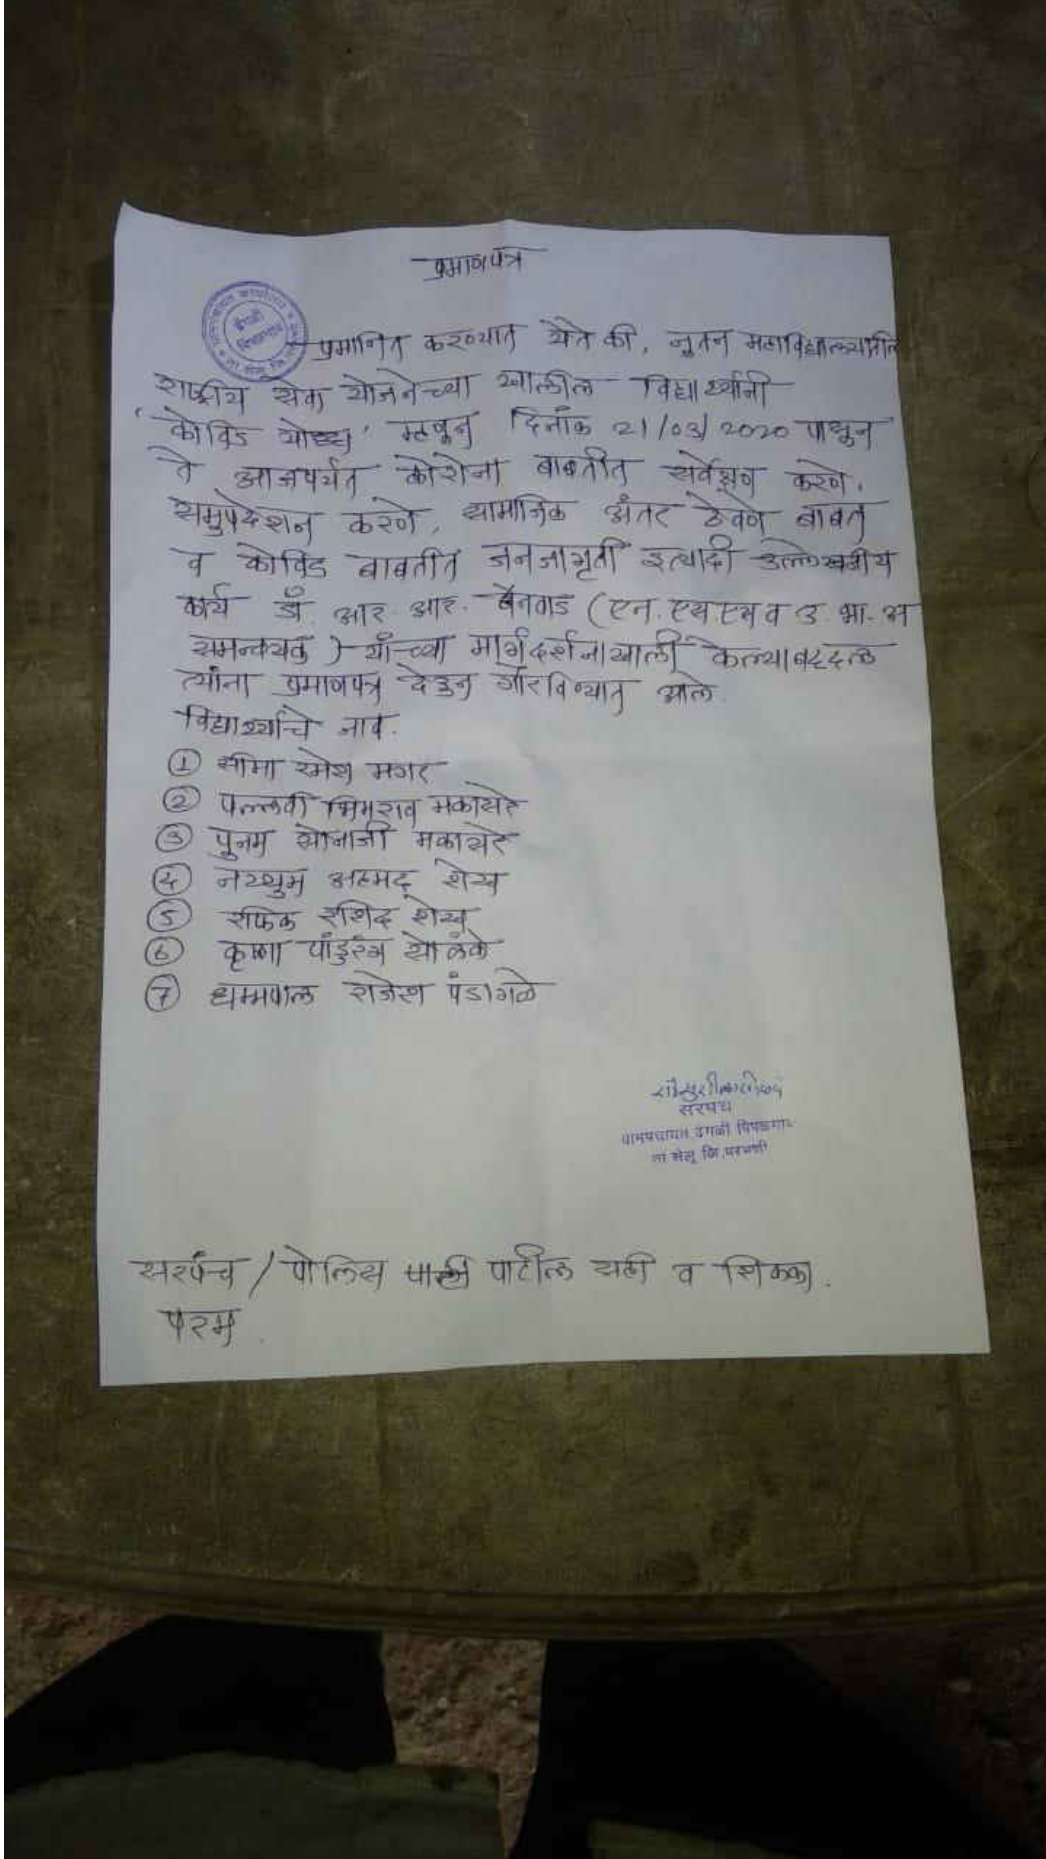 प्रमाणपत्र
प्रमानित करण्यात येते की, नूतन महाविद्यालयातील
राष्ट्रीय सेवा योजनेच्या खालील विद्यार्थ्यांनी
'कोविड योध्दा' म्हणून दिनांक 21/03/2020 पासून
ते आजपर्यंत कोरोना बाबतीत सर्वेक्षण करणे,
समुपदेशन करणे, सामाजिक अंतर ठेवणे बाबत
व कोविड बाबतीत जनजागृती इत्यादी उल्लेखनीय
कार्य डॉ आर. आर. (एन. एस एस व उ. भा. अ
समन्वयक) यांच्या मार्गदर्शनाखाली केल्याबद्दल
त्यांना प्रमाणपत्र देऊन गौरविण्यात आले.
विद्यार्थ्यांचे नाव.
① सीमा रमेश मगर
② पल्लवी भिमराव मकासरे
③ पुनम सोनाजी मकासरे
④ अहमद शेख
⑤ रफिक रशिद शेख
⑥ कृष्णा पांडुरंग सोळंके
⑦ धम्मपाल राजेश पंडागळे
सरपंच
ग्रामपंचायत ढेंगळी पिंपळगाव
ता.सेलू जि.परभणी
सरपंच / पोलिस पाटील सही व शिक्का.